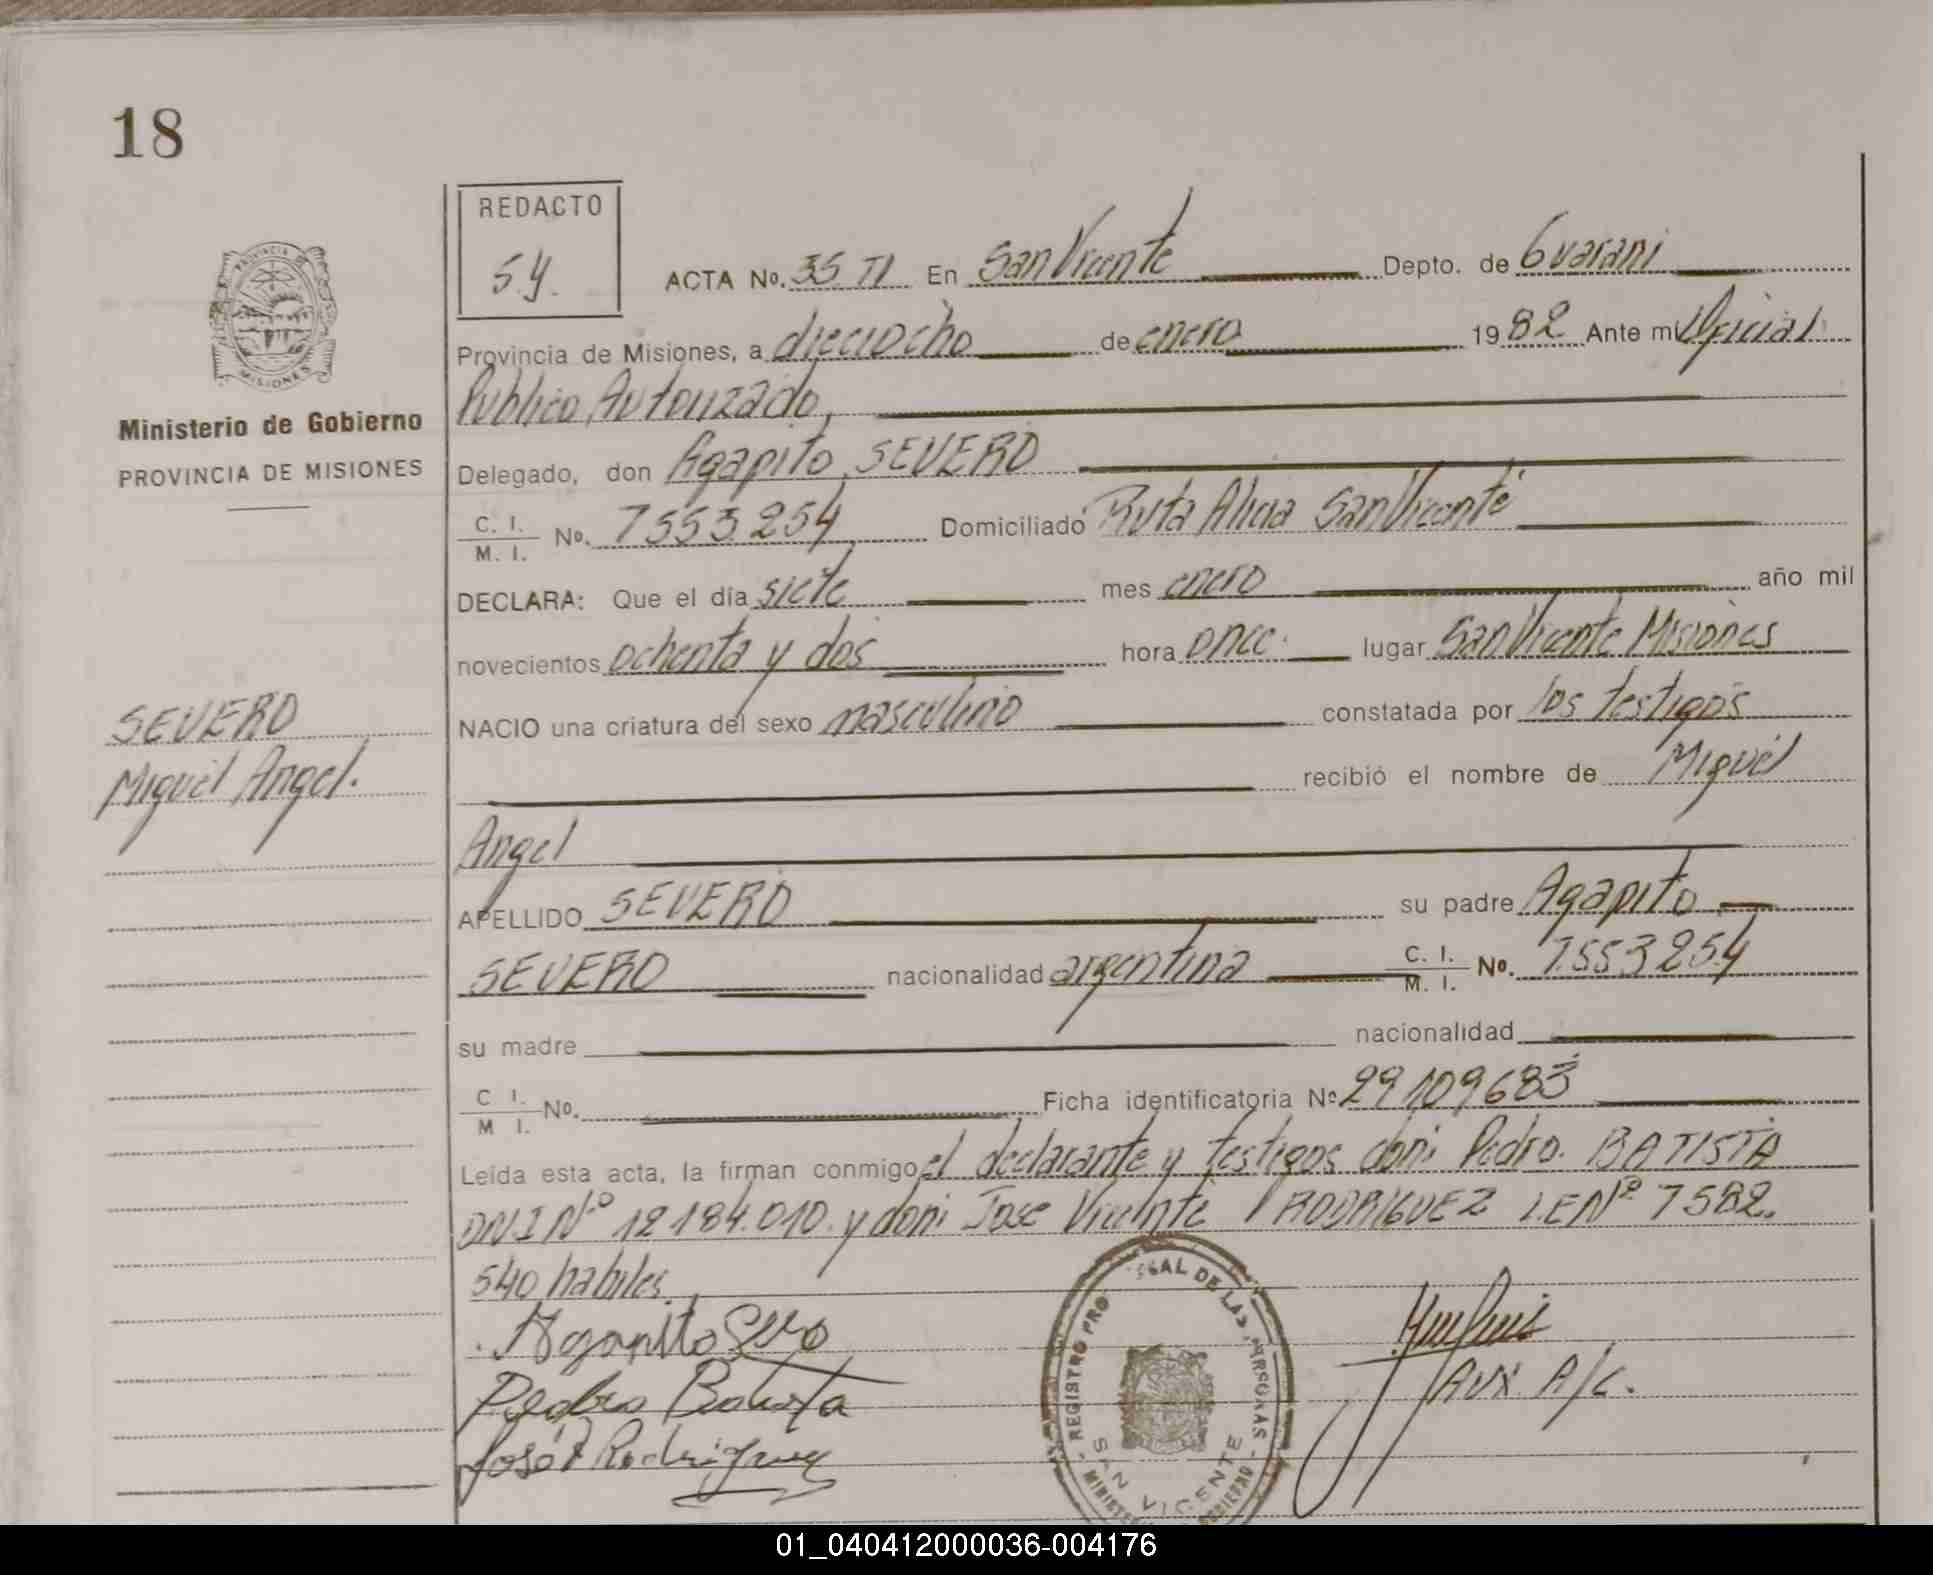 18
REDACTO
S.y.
PROVINCIA DE
MISIONES
Ministerio de Gobierno
PROVINCIA DE MISIONES
ACTA No. 35 TI En San Vicente Depto. de Guarani
Provincia de Misiones, a dieciocho de enero 1982 Ante mi Oficial
Publico Autorizado,
Delegado, don Agapito SEVERO
C. I. / M. I. No. 7553.254 Domiciliado Ruta Alicia San Vicente
DECLARA: Que el día siete mes enero año mil
novecientos ochenta y dos hora once lugar San Vicente Misiones
SEVERO
Miguel Angel.
NACIO una criatura del sexo masculino constatada por los testigos
recibió el nombre de Miguel
Angel
APELLIDO SEVERO su padre Agapito
SEVERO nacionalidad argentina C. I. / M. I. No. 7.553.254
su madre nacionalidad
C I. / M I. No. Ficha identificatoria Nº 29109683
Leída esta acta, la firman conmigo el declarante y testigos don: Pedro BATISTA
DNI Nº 12.184.010. y don: Jose Vicente RODRIGUEZ L.E Nº 7582.
540 habiles.
Agapito Sevro
Pedro Batista
José V Rodriguez
AUX. A/C.
REGISTRO PRO SAL DE LAS PERSONAS
SAN VICENTE
01_040412000036-004176